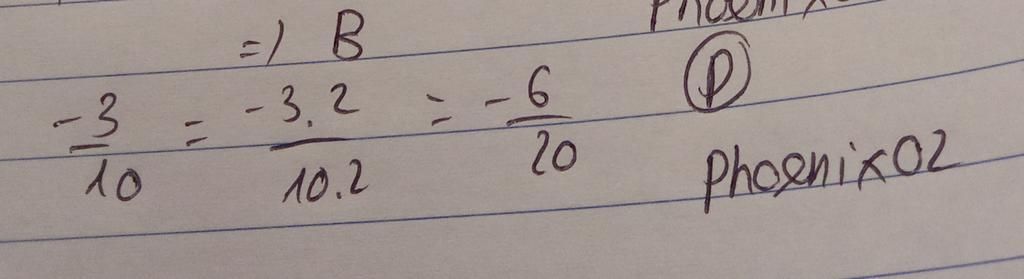 Phoenix
=) B
-3/10 = -3.2/10.2 = -6/20
P
Phoenix02